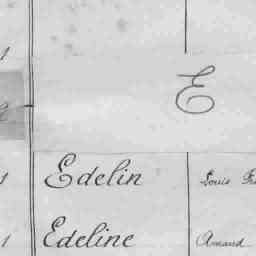 1
E
1 Edelin Louis Fr
1 Edeline Amand